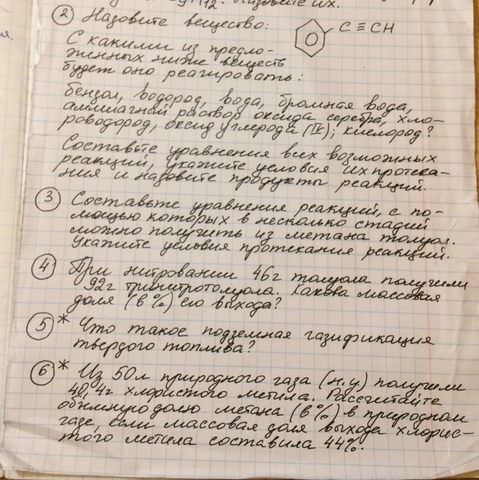 ② Назовите вещество: C ≡ CH
С какими из предло-
женных ниже веществ
будет оно реагировать:
бензол, водород, вода, бромная вода,
аммиачный раствор оксида серебра, хло-
роводород, оксид углерода (IV), кислород?
Составьте уравнения всех возможных
реакций, укажите условия их протека-
ния и назовите продукты реакций.
③ Составьте уравнения реакций, с по-
мощью которых в несколько стадий
можно получить из метана толуол.
Укажите условия протекания реакций.
④ При нитровании 46г толуола получили
92г тринитротолуола. Какова массовая
доля (в %) его выхода?
⑤* Что такое подземная газификация
твердого топлива?
⑥* Из 50л природного газа (н.у) получили
40,4г хлористого метила. Рассчитайте
объемную долю метана (в %) в природном
газе, если массовая доля выхода хлорис-
того метила составила 44%.